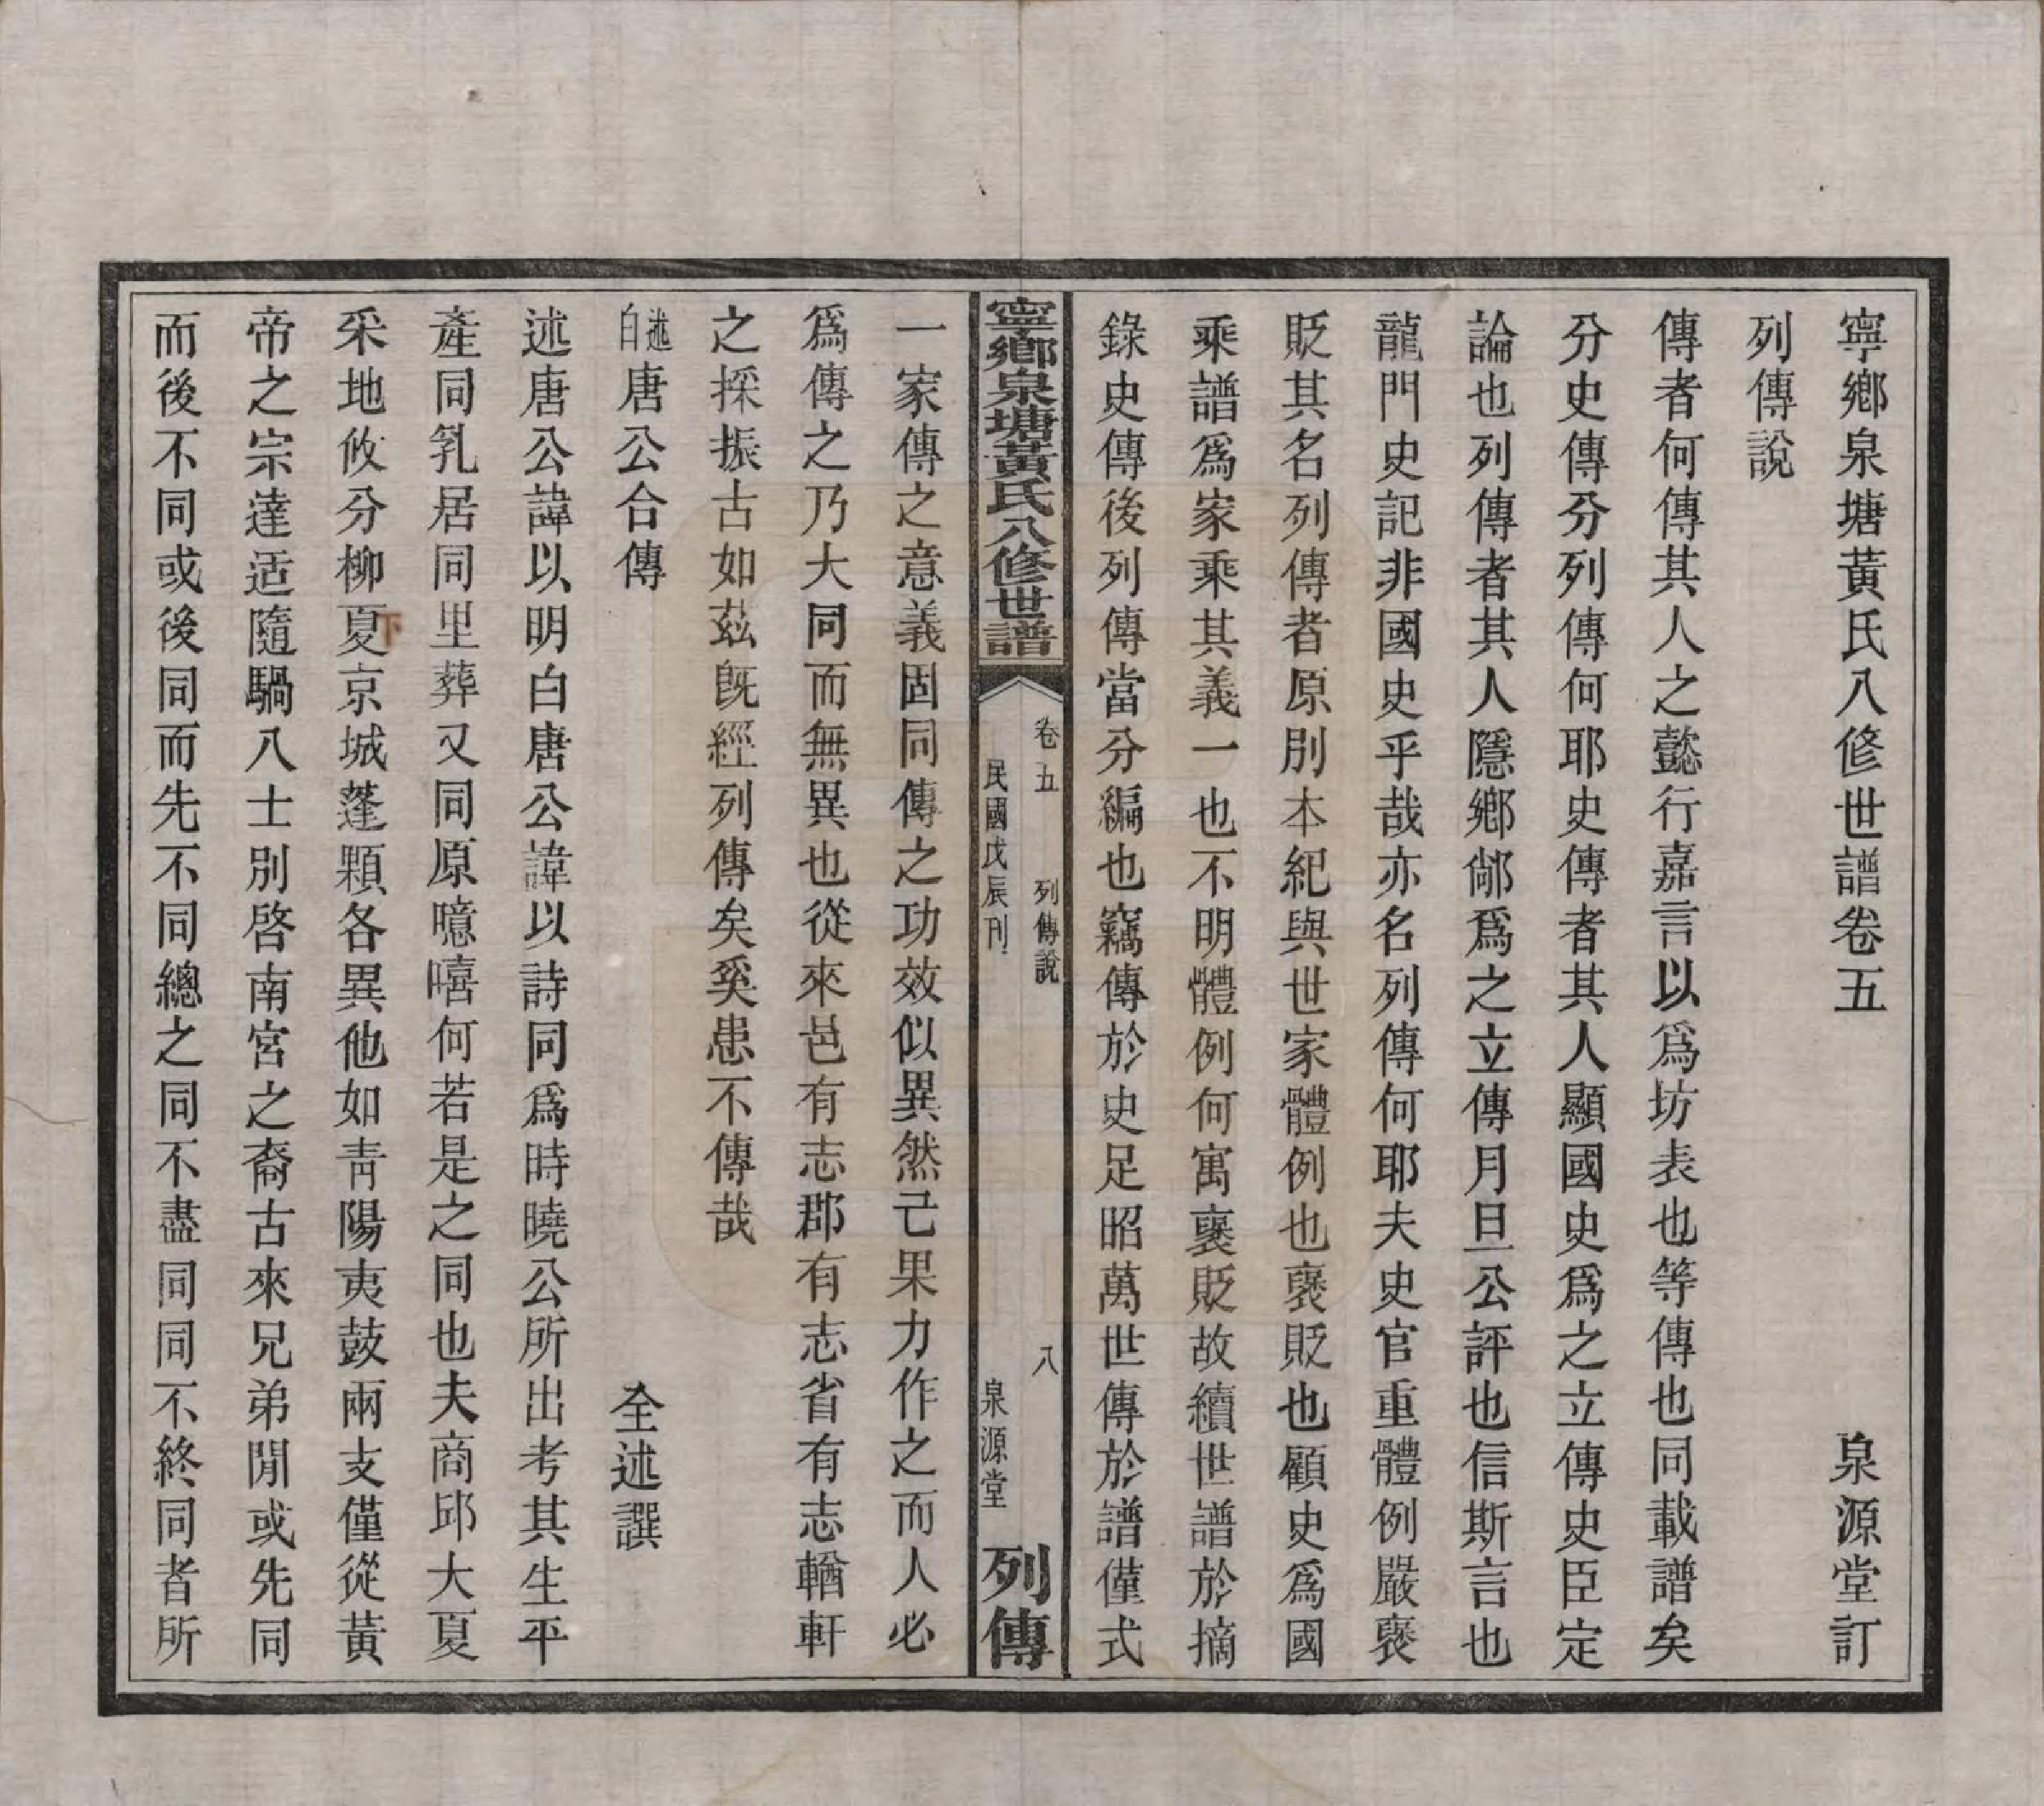 寧鄉泉塘黃氏八修世譜卷五　泉源堂訂
列傳說
傳者何傳其人之懿行嘉言以爲坊表也等傳也同載譜矣
分史傳分列傳何耶史傳者其人顯國史爲之立傳史臣定
論也列傳者其人隱鄉鄙爲之立傳月旦公評也信斯言也
龍門史記非國史乎哉亦名列傳何耶夫史官重體例嚴褒
貶其名列傳者原別本紀與世家體例也褒貶也顧史爲國
乘譜爲家乘其義一也不明體例何寓褒貶故續世譜於摘
錄史傳後列傳當分編也竊傳於史足昭萬世傳於譜僅式
寧鄉泉塘黃氏八修世譜
卷五　列傳說　八
民國戊辰刊　泉源堂
列傳
一家傳之意義固同傳之功效似異然己果力作之而人必
爲傳之乃大同而無異也從來邑有志郡有志省有志輶軒
之採振古如茲旣經列傳矣奚患不傳哉
述白唐公合傳　全述譔
述唐公諱以明白唐公諱以詩同爲時曉公所出考其生平
產同乳居同里葬又同原噫嘻何若是之同也夫商邱大夏
采地攸分柳夏京城蓬顆各異他如靑陽夷鼓兩支僅從黃
帝之宗達适隨騧八士別啓南宮之裔古來兄弟閒或先同
而後不同或後同而先不同總之同不盡同同不終同者所
下